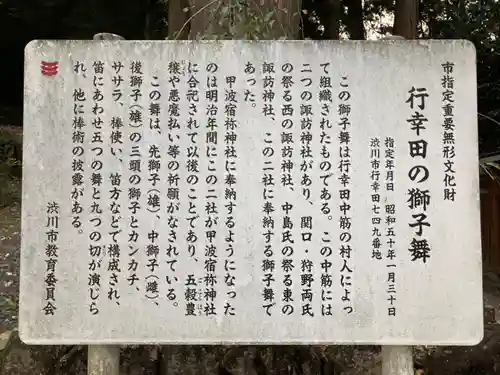 市指定重要無形文化財
行幸田の獅子舞
指定年月日 昭和五十年一月三十日
渋川市行幸田七四九番地
この獅子舞は行幸田中筋の村人によっ
て組織されたものである。この中筋には
二つの諏訪神社があり、関口・狩野両氏
の祭る西の諏訪神社、中島氏の祭る東の
諏訪神社、この二社に奉納する獅子舞で
あった。
甲波宿祢神社に奉納するようになった
のは明治年間にこの二社が甲波宿祢神社
に合祀されて以後のことであり、五穀豊
穣や悪魔払い等の祈願がなされている。
この舞は、先獅子（雄）、中獅子（雌）、
後獅子（雄）の三頭の獅子とカンカチ、
ササラ、棒使い、笛方などで構成され、
笛にあわせ五つの舞と九つの切が演じら
れ、他に棒術の披露がある。
渋川市教育委員会